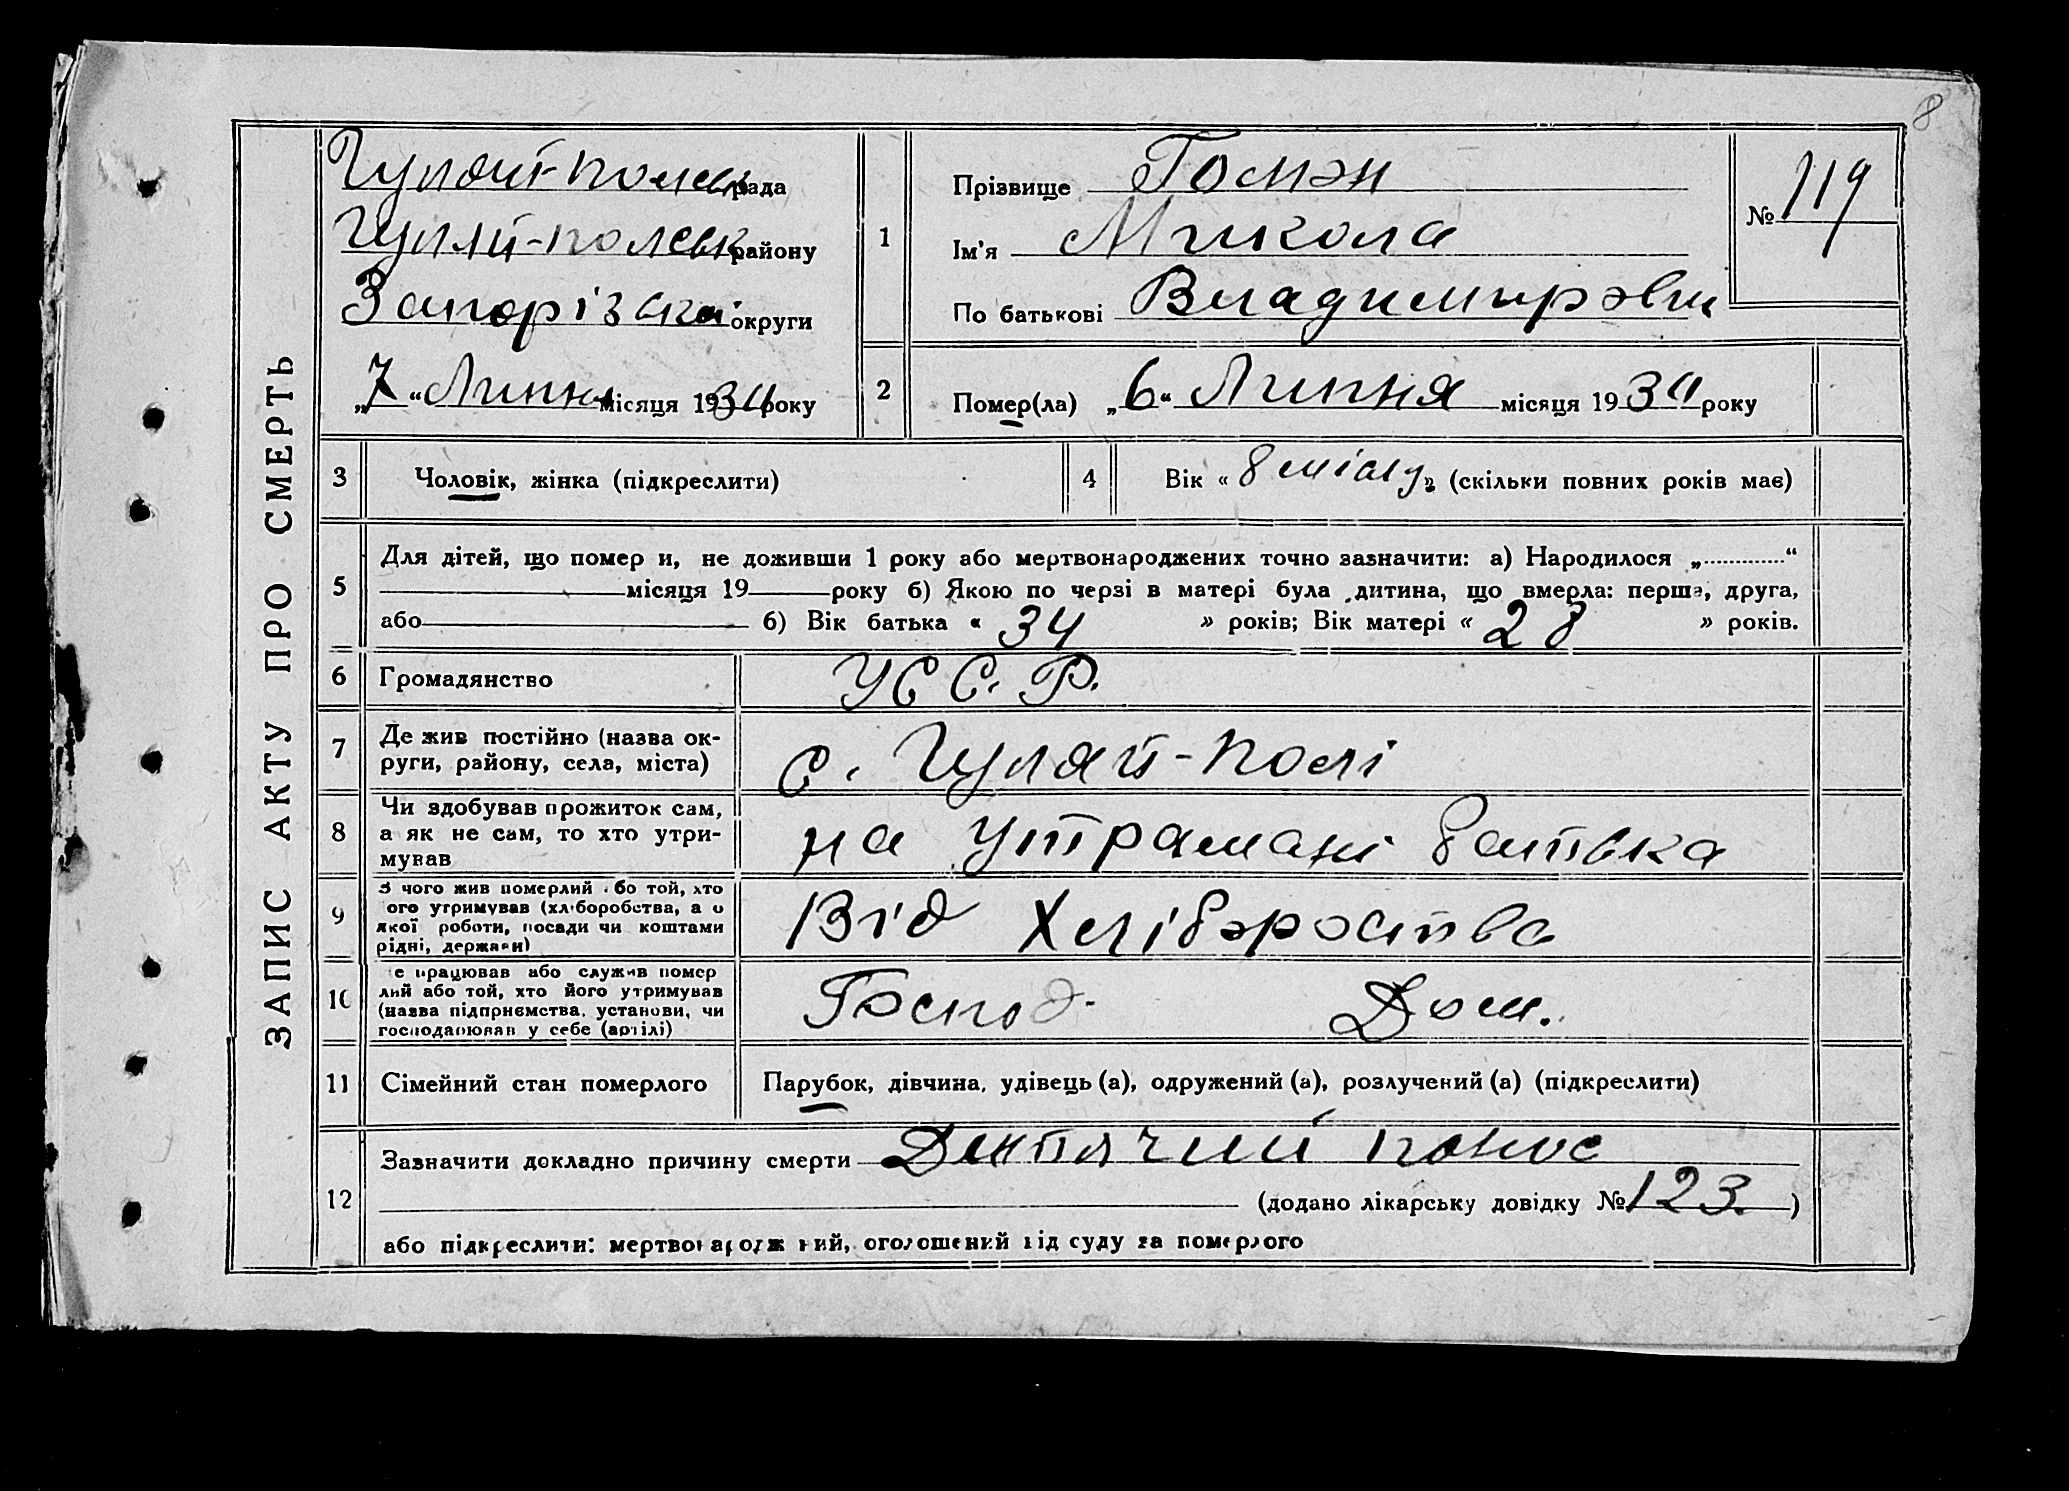 8
ЗАПИС АКТУ ПРО СМЕРТЬ
Гуляй-полськ рада
Гуляй-полськ району
Запорізької округи
„7“ Липня місяця 1934 року
1
Прізвище Гомэн
Ім'я Микола
По батькові Владимирович
№ 119
2
Помер(ла) „6“ Липня місяця 1934 року
3
Чоловік, жінка (підкреслити)
4
Вік « 8 місяц » (скільки повних років має)
5
Для дітей, що помер и, не доживши 1 року або мертвонароджених точно зазначити: а) Народилося „............“
місяця 19 року б) Якою по черзі в матері була дитина, що вмерла: перша, друга,
або б) Вік батька « 34 » років; Вік матері « 28 » років.
6
Громадянство
УСС.Р.
7
Де жив постійно (назва ок-
руги, району, села, міста)
с. Гуляй-полі
8
Чи здобував прожиток сам,
а як не сам, то хто утри-
мував
на утрамані батька
9
З чого жив померлий або той, хто
його утримував (хліборобства, а о
якої роботи, посади чи коштами
рідні, держави)
Від Хліборoства
10
е працював або служив помер
лий або той, хто його утримував
(назва підприємства, установи, чи
господарював у себе (артілі)
Господ. Дом.
11
Сімейний стан померлого
Парубок, дівчина, удівець (а), одружений (а), розлучений (а) (підкреслити)
12
Зазначити докладно причину смерти Дитячий понос
(додано лікарську довідку № 123 )
або підкреслити: мертвонароджений, оголошений від суду за померлого